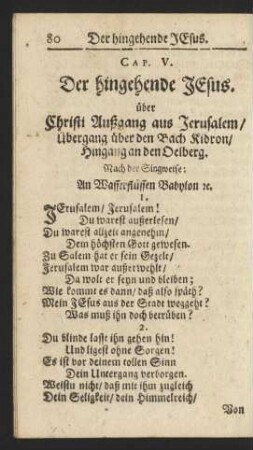 80 Der hingehende JEsus.
CAP. V.
Der hingehende JEsus.
über
Christi Außgang aus Jerusalem/
Übergang über den Bach Kidron/
Hingang an den Oelberg.
Nach der Singweise:
An Wasserflüssen Babylon ꝛc.
1.
JErusalem/ Jerusalem!
Du warest außerlesen/
Du warest allzeit angenehm/
Dem höchsten Gott gewesen.
Zu Salem hat er sein Gezelt/
Jerusalem war außerwehlt/
Da wolt er seyn und bleiben;
Wie kommt es dann/ daß also späth?
Mein JEsus aus der Stadt weggeht?
Was muß ihn doch betrüben?
2.
Du blinde lasst ihn gehen hin!
Und ligest ohne Sorgen!
Es ist vor deinem tollen Sinn
Dein Untergang verborgen.
Weistu nicht/ daß mit ihm zugleich
Dein Seligkeit/ dein Himmelreich/
Von